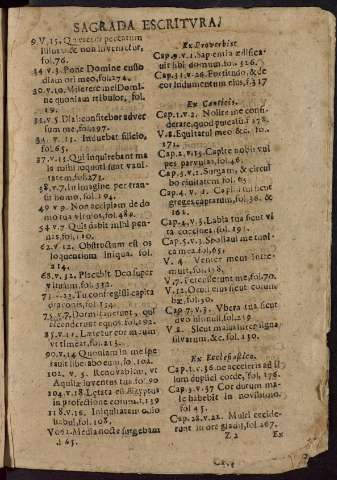 SAGRADA ESCRITVRA.
fol.76.
34 v.3. Pone Domine custo
diam ori meo, fol.274.
30.v.10. Miserere mei Domi
ne quoniam tribulor, fol.
19.
fum me, fol.197.
fol.65.
37.v.13. Qui inquirebant ma
38.v.7. in imagine per tran
sit homo, fol.194.
49 v 9. Non accipiam de do
mo tua vitulos, fol.480.
54 v.7 Quis dabit mihi pen-
nas, fol.110.
62.v.12. Obstructum est os
loquentium iniqua. fol.
214.
68.v.32. Placebit Deo super
vitulum, fol.312.
Tu confregisti capita
draconis, fol.134
75.v.7. Dormitaverunt, qui
ascenderunt equos fol.192.
85.v.11. Lætetur cor meum
vt timeat, fol.215.
90.v.14 Quoniam in me spe
ravit liberabo eum, fol.102.
102. v. 5. Renovabitur, vt
Aquilæ iuventus tua. fol.90
104.v.18. Lætata est Ægyptus
in profectione eorum.f.159
118.v.16. Iniquitatem odio
habui, fol.108.
V.62. Media nocte surgebam
Ex Proverbiis.
Cap.9.v.1. Sapientia ædifica-
vit sibi domum. fol.326.
Cap.31.v.26. Fortitudo, & de
cor indumentum eius, f.317
Ex Canticis.
Cap.1.v.2. Nolite me consi-
derare, quod fusca sim, f.178.
fol.
171.
Cap.2.v.15. Capite nobis vul
pes parvulas, fol.46.
Cap.3.v.1. Surgam, & circui
bo civitatem fol. 63
Cap.4. v. 1. Capilli tui sicut
greges caprarum, fol.36. &
162.
Cap.4.v.3. Labia tua sicut vi
ta coccinea, fol.191.
Cap.5.v.3. Spoliavi me tuni-
ca mea fol.65.
V. 4 Venter meus intre
muit, fol.158,
V.7. Percusserunt me, fol.70.
V.12. Oculi eius sicut colum
bæ, fol.30.
Cap 7.v.3. Vbera tua sicut
duo hinnuli, fol.219
V.2. Sicut malus inter ligna
silvarum, &c. fol.130.
Ex Ecclesiastico.
Cap.1.v.36. Ne accesseris ad il
lum duplici corde, fol.176.
Cap.3.v.37 Cor durum ma-
le habebit in novissimo.
fol 45.
Cap.28.v.22. Multi cecide-
runt in ore gladij, fol.267.
Z 2
Ex